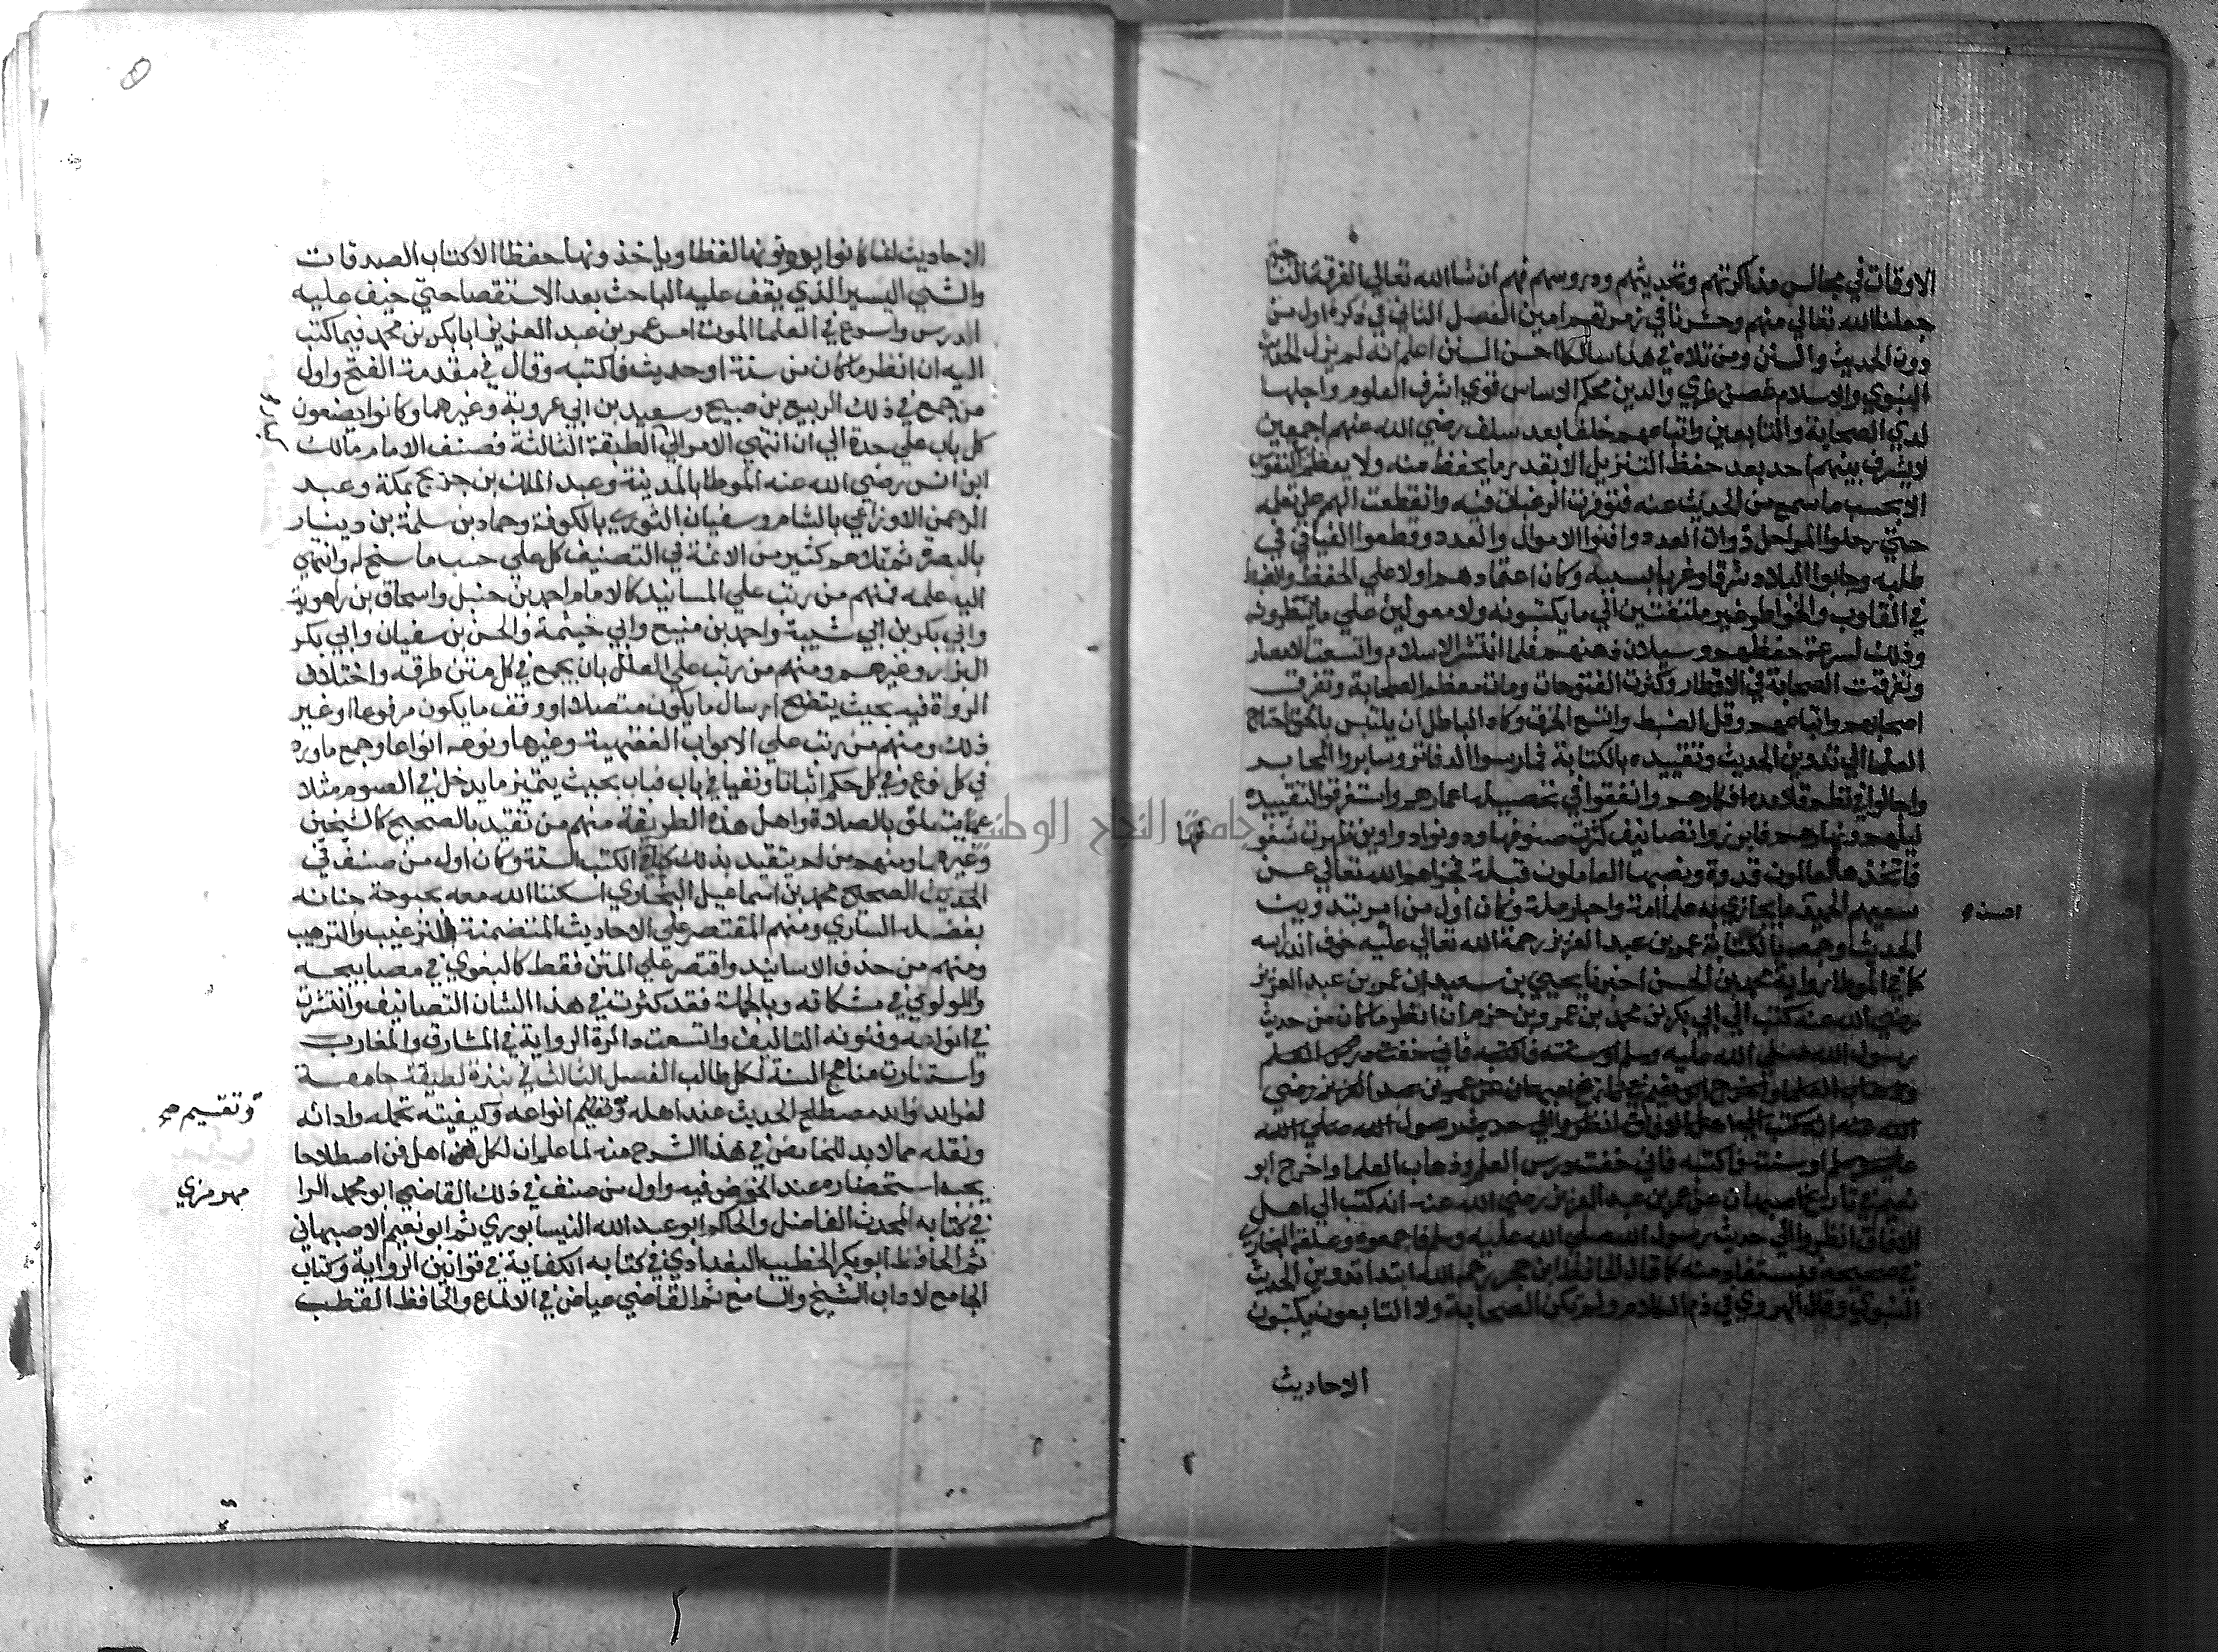 الاوقات في مجالس مذاكرتهم وتحديثهم ودروسهم فهم ان شا الله تعالي الفرقة الناجية
جعلنا الله تعالي منهم وحشرنا في زمرتهم امين الفصل الثاني في ذكر اول من
دون الحديث والسنن ومن تلاه في هذا سالكا احسن السنن اعلم انه لم يزل الحديث
النبوي والاسلام غصن طري والدين محكم الاساس قوي اشرف العلوم واجلها
لدي الصحابة والتابعين واتباعهم خلفا بعد سلف رضي الله عنهم اجمعين
لا يشرف بينهم احد بعد حفظ التنزيل الا بقدر ما يحفظ منه ولا يعظم في النفوس
الا بحسب ما سمع من الحديث عنه فتوفرت الرغبات فيه وانقطعت الهمم علي تعلمه
حتي رحلوا المراحل ذوات العدد وافنوا الاموال والعدد وقطعوا الفيافي في
طلبه وجابوا البلاد شرقا وغربا بسببه وكان اعتمادهم اولا علي الحفظ والضبط
في القلوب والخواطر غير ملتفتين الي ما يكتبونه ولا معولين علي ما يسطرونه
وذلك لسرعة حفظهم وسيلان ذهنهم فلما انتشر الاسلام واتسعت الامصار
وتفرقت الصحابة في الاقطار وكثرت الفتوحات ومات معظم الصحابة وتفرق
اصحابهم واتباعهم وقل الضبط واتسع الخرق وكاد الباطل ان يلتبس بالحق احتاج
العلما الي تدوين الحديث وتقييده بالكتابة فمارسوا الدفاتر وسايروا المحابر
واجالوا في نظم قلائده افكارهم وانفقوا في تحصيله اعمارهم واستغرقوا لتقييده
ليلهم ونهارهم فابرزوا تصانيف كثرت صنوفها ودونوا دواوين ظهرت شفو
فها
فاتخذها العالمون قدوة ونصبها العاملون قبلة فجزاهم الله تعالي عن
سعيهم الحميد ما يجازي به علما امة واحبار ملة وكان اول من امر بتدوين
احسن
الحديث وجمعه بالكتابة عمر بن عبد العزيز رحمة الله تعالي عليه خوف اندراسه
كما في الموطا رواية محمد بن الحسن اخبرنا يحيي بن سعيد ان عمر بن عبد العزيز
رضي الله عنه كتب الي ابي بكر بن محمد بن عمرو بن حزم ان انظر ما كان من حديث
رسول الله صلي الله عليه وسلم او سنته فاكتبه فاني خفت دروس العلم
وذهاب العلما واخرج ابو نعيم في تاريخ اصبهان عن عمر بن عبد العزيز رضي
الله عنه انه كتب الي اهل الافاق انظروا الي حديث رسول الله صلي الله
عليه وسلم او سنته فاكتبه فاني خفت درس العلم وذهاب العلما واخرج ابو
نعيم في تاريخ اصبهان عن عمر بن عبد العزيز رضي الله عنه انه كتب الي اهل
الافاق انظروا الي حديث رسول الله صلي الله عليه وسلم فاجمعوه وعلقه البخاري
في صحيحه فيستفاد منه كما قال الحافظ ابن حجر رحمه الله ابتدا تدوين الحديث
النبوي وقال الهروي في ذم الكلام ولم تكن الصحابة ولا التابعون يكتبون
الاحاديث
الاحاديث انما كانوا يودونها لفظا وياخذونها حفظا الا كتاب الصدقات
والشي اليسير الذي يقف عليه الباحث بعد الاستقصا حتي خيف عليه
الدرس واسرع في العلما الموت امر عمر بن عبد العزيز ابا بكر بن محمد فيما كتب
اليه ان انظر ما كان من سنة او حديث فاكتبه وقال في مقدمة الفتح واول
من جمع في ذلك الربيع بن صبيح وسعيد بن ابي عروبة وغيرهما وكانوا يضعون
كل باب علي حدة الي ان انتهي الامر الي الطبقة الثالثة فصنف الامام مالك
ابن انس رضي الله عنه الموطا بالمدينة وعبد الملك بن جريج بمكة وعبد
الرحمن الاوزاعي بالشام وسفيان الثوري بالكوفة وحماد بن سلمة بن دينار
بالبصرة ثم تلاهم كثير من الائمة في التصنيف كل علي حسب ما سنح له وانتهي
اليه علمه فمنهم من رتب علي المسانيد كالامام احمد بن حنبل واسحاق بن راهويه
وابي بكر بن ابي شيبة واحمد بن منيع وابي خيثمة والحسن بن سفيان وابي بكر
البزار وغيرهم ومنهم من رتب علي العلل بان يجمع في كل متن طرقه واختلاف
الرواة فيه بحيث يتضح ارسال ما يكون متصلا او وقف ما يكون مرفوعا او غير
ذلك ومنهم من رتب علي الابواب الفقهية وغيرها ونوعه انواعا وجمع ما ورد
في كل نوع وفي كل حكم اثباتا ونفيا في باب فباب بحيث يتميز ما يدخل في الصوم مثلا
عما يتعلق بالصلاة واهل هذه الطريقة منهم من تقيد بالصحيح كالشيخين
وغيرهما ومنهم من لم يتقيد بذلك كباقي الكتب الستة وكان اول من صنف في
الحديث الصحيح محمد بن اسماعيل البخاري اسكننا الله معه بحبوحة جنانه
بفضله الساري ومنهم المقتصر علي الاحاديث المتضمنة للترغيب والترهيب
ومنهم من حذف الاسانيد واقتصر علي المتن فقط كالبغوي في مصابيحه
واللولوي في مشكاته وبالجملة فقد كثرت في هذا الشان التصانيف وانتشرت
في انواعه وفنونه التاليف واتسعت دائرة الرواية في المشارق والمغارب
واستنارت مناهج السنة لكل طالب الفصل الثالث في نبذة لطيفة جامعة
لفرايد فوايد مصطلح الحديث عند اهله وتقسيم انواعه وكيفيته تحمله وادائه
وتقسيم صح
ونقله مما لا بد للخائض في هذا الشرح منه لما علم ان لكل اهل فن اصطلاحا
يجب استحضاره عند الخوض فيه واول من صنف في ذلك القاضي ابو محمد الرا
مهرمزي
في كتابه المحدث الفاضل والحاكم ابو عبد الله النيسابوري ثم ابو نعيم الاصبهاني
ثم الحافظ ابو بكر الخطيب البغدادي في كتابه الكفاية في قوانين الرواية وكتاب
الجامع لاداب الشيخ والسامع ثم القاضي عياض في الالماع والحافظ القطب
جامعة النجاح الوطنية